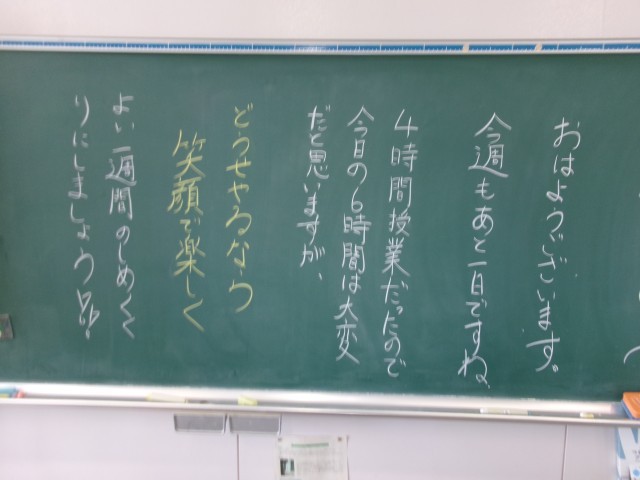 おはようございます。
今週もあと一日ですね。
4時間授業だったので
今日の6時間は大変
だと思いますが、
どうせやるなら
笑顔で楽しく
よい一週間のしめくく
りにしましょう